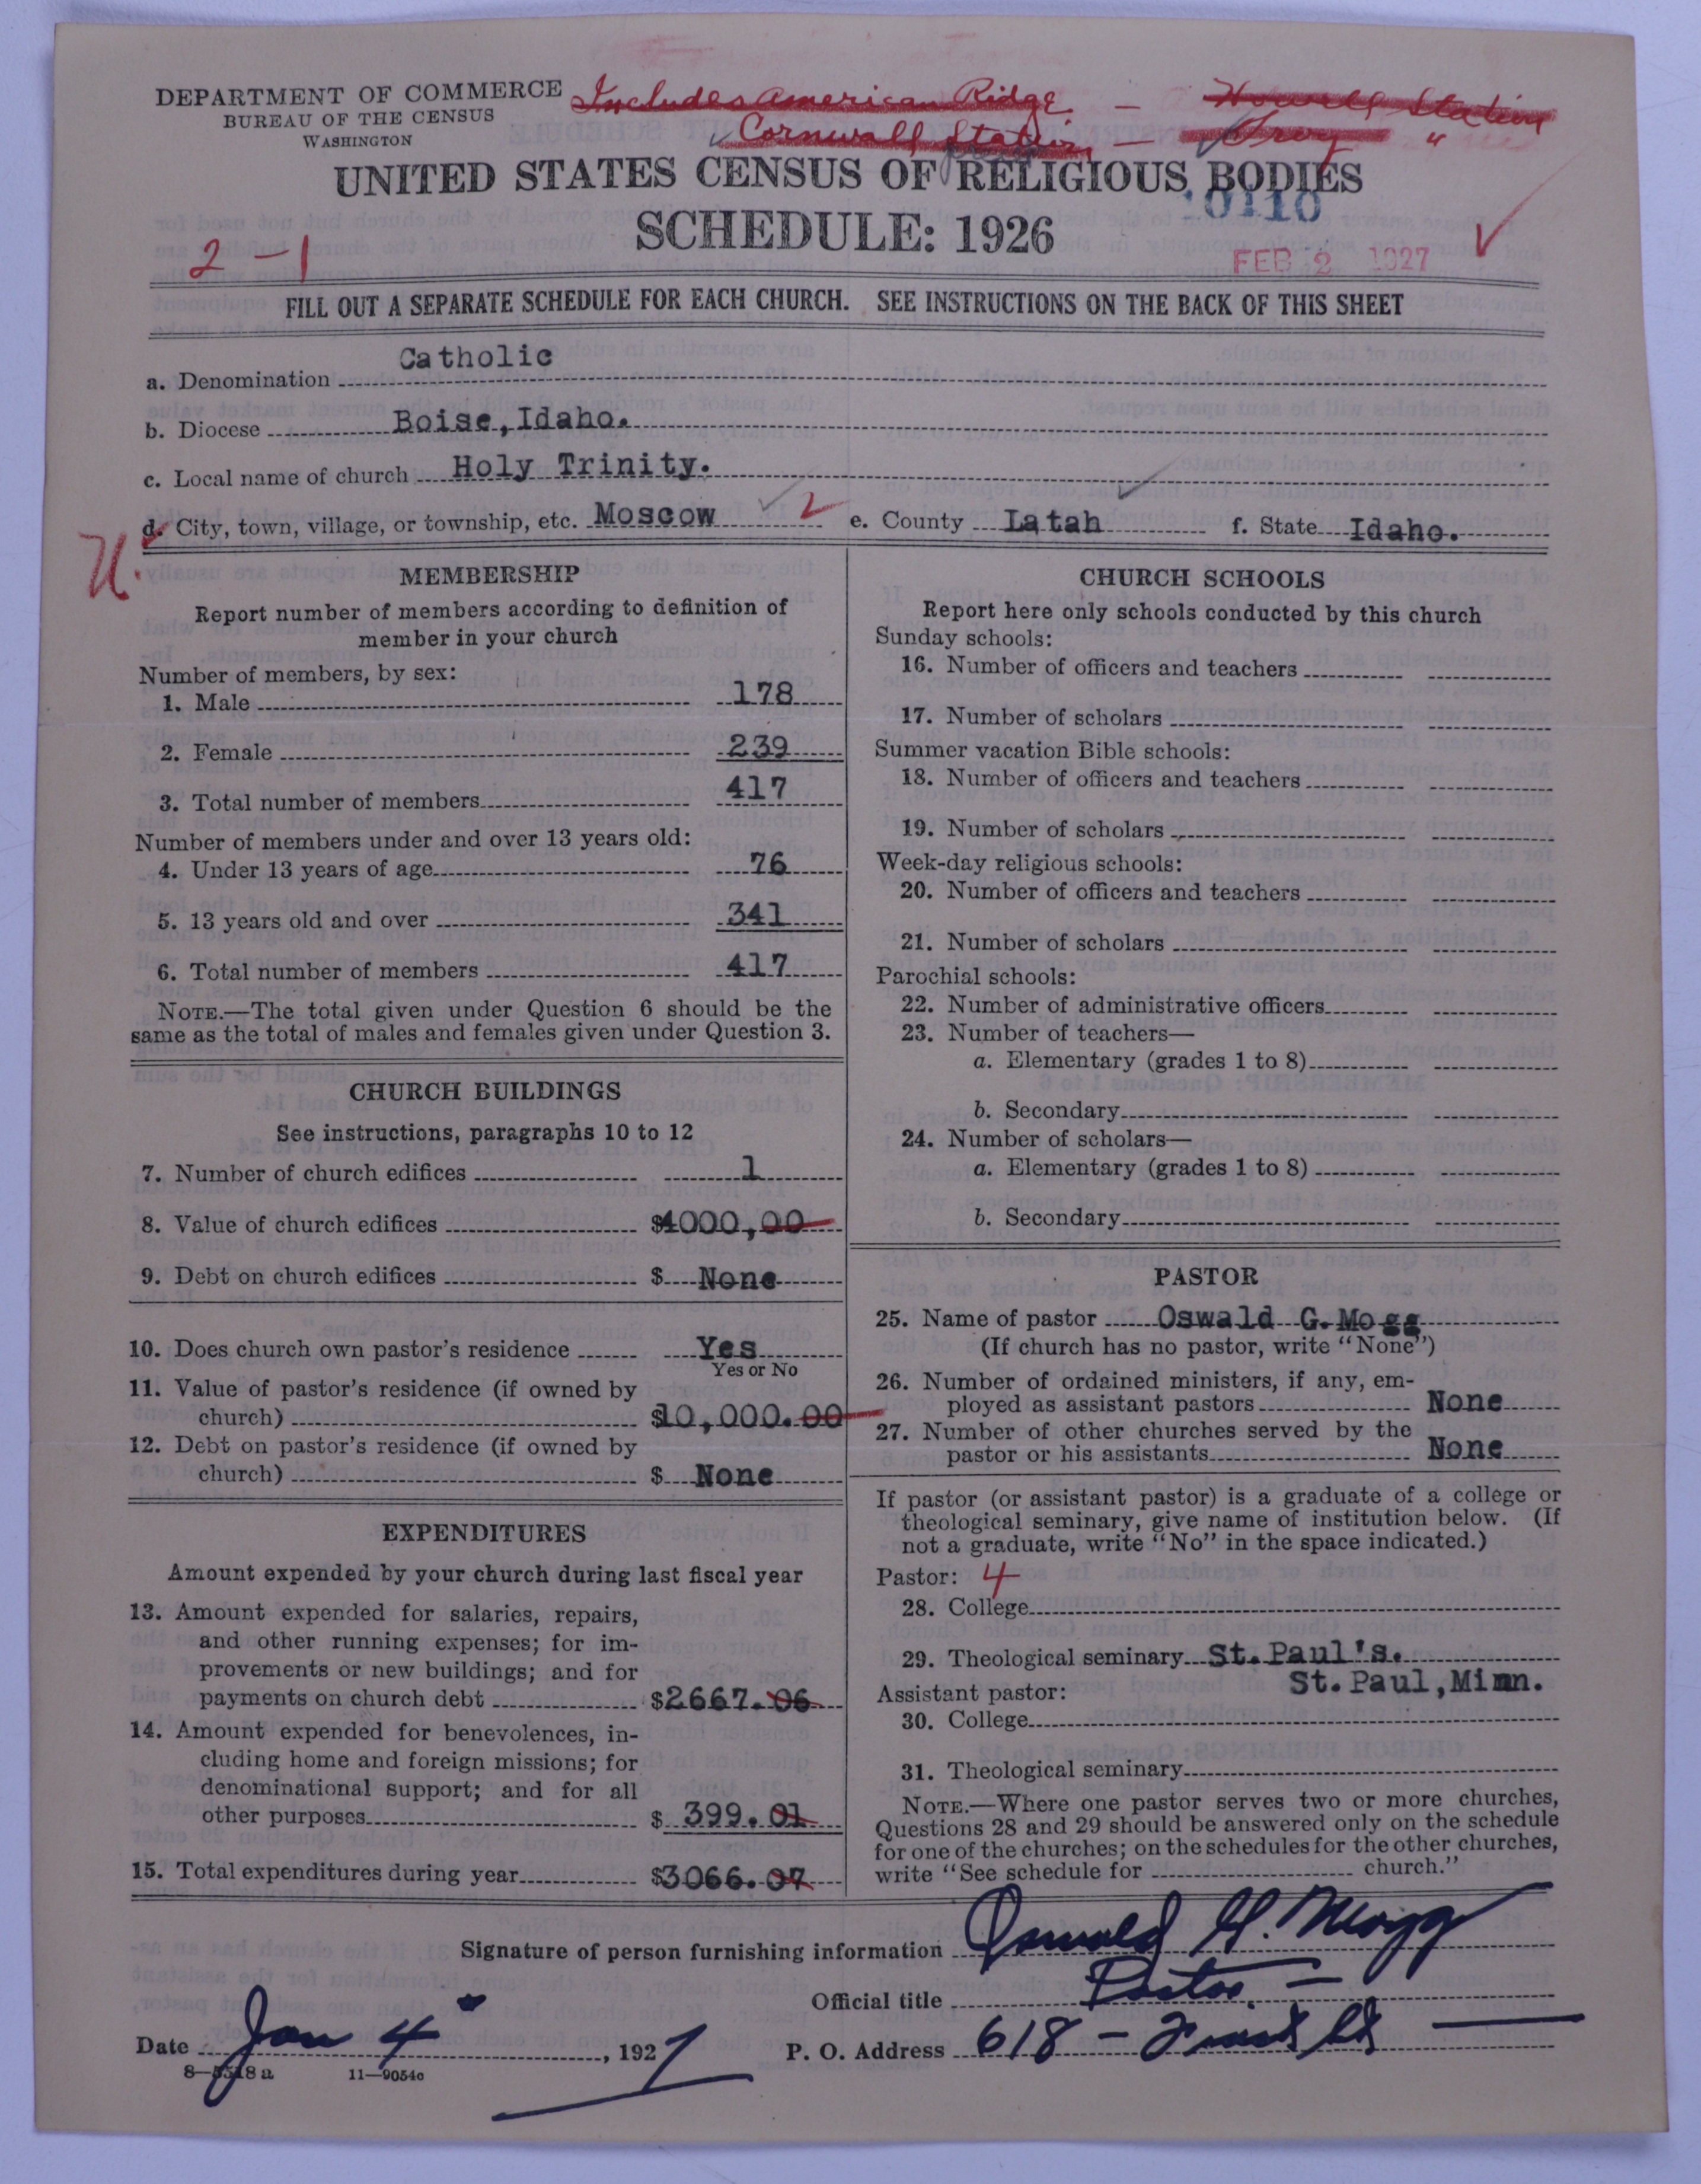 DEPARTMENT OF COMMERCE
BUREAU OF THE CENSUS
WASHINGTON
Includes American Ridge — Howell Station
Cornwall Station — Troy "
UNITED STATES CENSUS OF RELIGIOUS BODIES
SCHEDULE: 1926
10110
2 - 1
FEB 2 1927
FILL OUT A SEPARATE SCHEDULE FOR EACH CHURCH. SEE INSTRUCTIONS ON THE BACK OF THIS SHEET
a. Denomination Catholic
b. Diocese Boise, Idaho.
c. Local name of church Holy Trinity.
d. City, town, village, or township, etc. Moscow 2 e. County Latah f. State Idaho.
U.
MEMBERSHIP
Report number of members according to definition of
member in your church
Number of members, by sex:
1. Male 178
2. Female 239
3. Total number of members 417
Number of members under and over 13 years old:
4. Under 13 years of age 76
5. 13 years old and over 341
6. Total number of members 417
NOTE.—The total given under Question 6 should be the
same as the total of males and females given under Question 3.
CHURCH BUILDINGS
See instructions, paragraphs 10 to 12
7. Number of church edifices 1
8. Value of church edifices $4000,00
9. Debt on church edifices $ None
10. Does church own pastor's residence Yes
Yes or No
11. Value of pastor's residence (if owned by
church) $10,000.00
12. Debt on pastor's residence (if owned by
church) $ None
EXPENDITURES
Amount expended by your church during last fiscal year
13. Amount expended for salaries, repairs,
and other running expenses; for im-
provements or new buildings; and for
payments on church debt $2667.06
14. Amount expended for benevolences, in-
cluding home and foreign missions; for
denominational support; and for all
other purposes $ 399.01
15. Total expenditures during year $3066.07
CHURCH SCHOOLS
Report here only schools conducted by this church
Sunday schools:
16. Number of officers and teachers
17. Number of scholars
Summer vacation Bible schools:
18. Number of officers and teachers
19. Number of scholars
Week-day religious schools:
20. Number of officers and teachers
21. Number of scholars
Parochial schools:
22. Number of administrative officers
23. Number of teachers—
a. Elementary (grades 1 to 8)
b. Secondary
24. Number of scholars—
a. Elementary (grades 1 to 8)
b. Secondary
PASTOR
25. Name of pastor Oswald G. Mogg
(If church has no pastor, write "None")
26. Number of ordained ministers, if any, em-
ployed as assistant pastors None
27. Number of other churches served by the
pastor or his assistants None
If pastor (or assistant pastor) is a graduate of a college or
theological seminary, give name of institution below. (If
not a graduate, write "No" in the space indicated.)
Pastor: 4
28. College
29. Theological seminary St. Paul's.
St. Paul, Minn.
Assistant pastor:
30. College
31. Theological seminary
NOTE.—Where one pastor serves two or more churches,
Questions 28 and 29 should be answered only on the schedule
for one of the churches; on the schedules for the other churches,
write "See schedule for church."
Signature of person furnishing information Oswald G. Mogg
Official title Pastor.
Date Jan 4, 1927 P. O. Address 618 -
8—5518 a 11—9054c